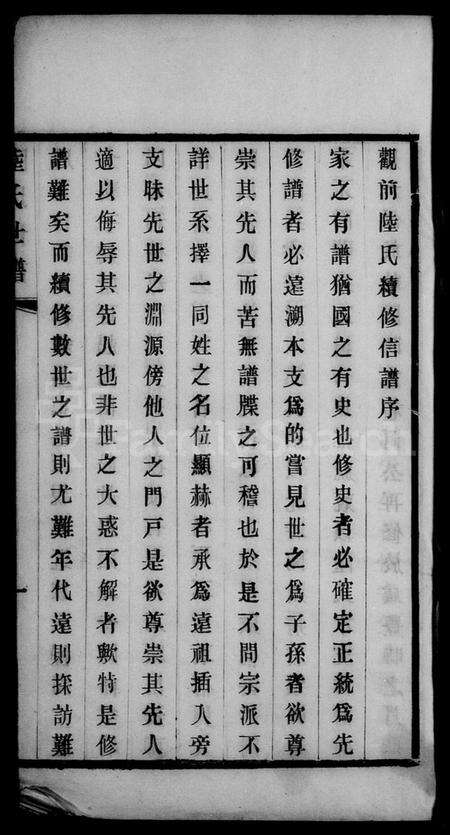 觀前陸氏續修信譜序
家之有譜猶國之有史也修史者必確定正統爲先
修譜者必遠溯本支爲的嘗見世之爲子孫者欲尊
崇其先人而苦無譜牒之可稽也於是不問宗派不
詳世系擇一同姓之名位顯赫者承爲遠祖插入旁
支昧先世之淵源傍他人之門戸是欲尊崇其先人
適以侮辱其先人也非世之大惑不解者歟特是修
譜難矣而續修數世之譜則尤難年代遠則探訪難
陸氏世譜
一